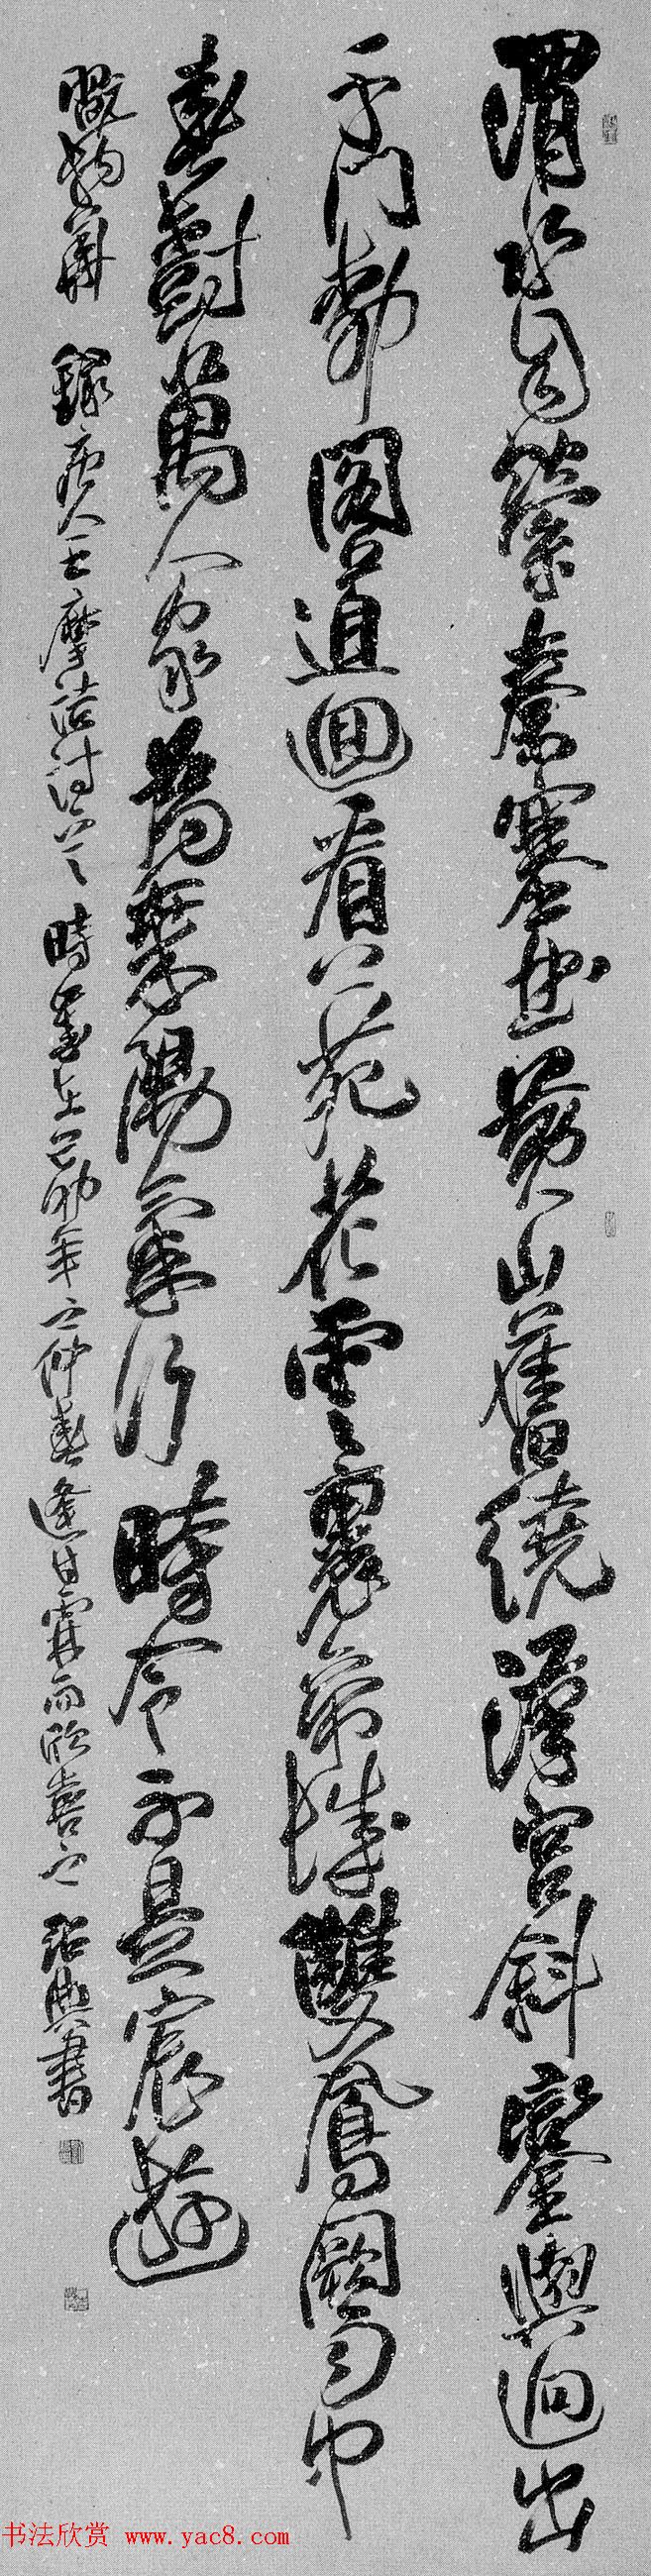 渭水自縈秦塞曲黃山舊繞漢宮斜鑾輿迥出
千門柳閣道迴看上苑花雲裏帝城雙鳳闕雨中
春樹萬人家為乘陽氣行時令不是宸遊
翫物華 錄唐人王摩詰詩 時歲在己卯年之仲春逢甘霖而欣喜之 紹典書
书法欣赏 www.yac8.com